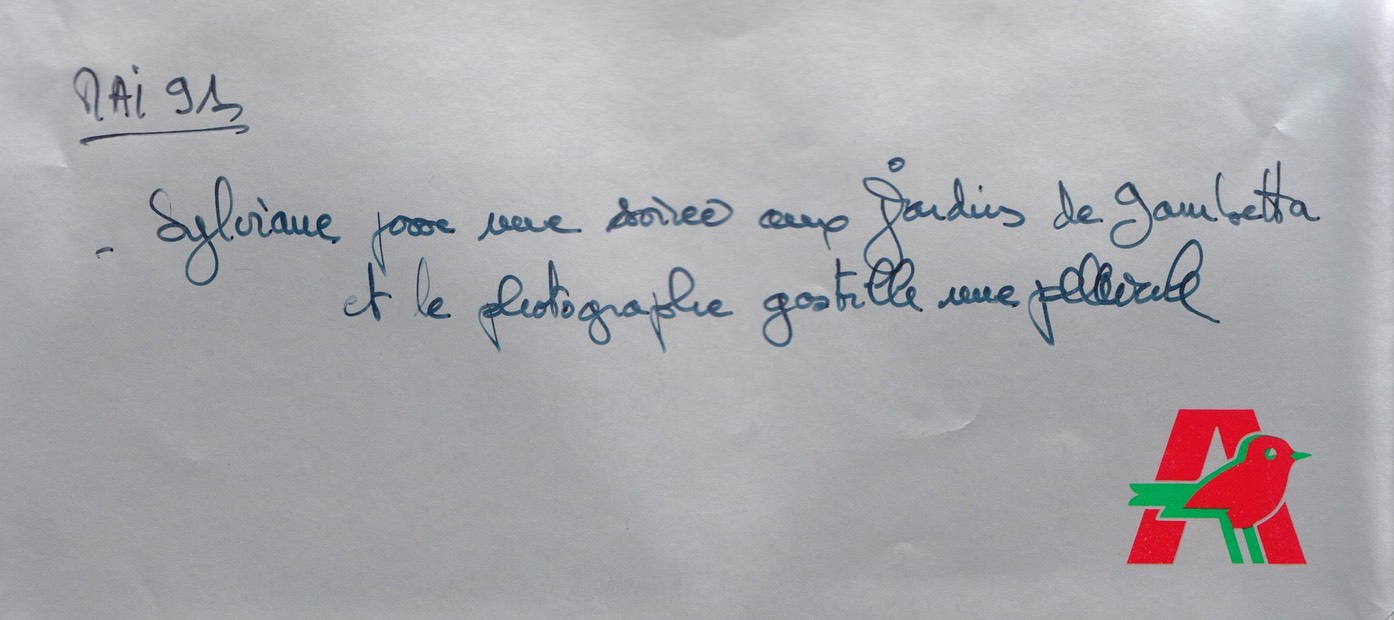 MAI 91
- Sylviane passe une soirée aux Jardins de Gambetta
et le photographe gaspille une pellicule
A